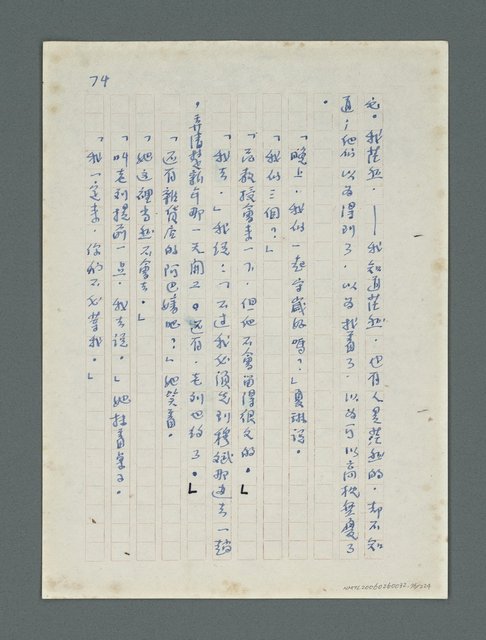 74
它。我茫然。——我知道茫然。也有人是茫然的。却不知
道,他們以為得到了。以為找着了。以為可以高枕無憂了
。
「晚上。我們一起守歲好嗎?」夏琳說。
「我們三個?」
「范教授會來一下,但他不會留得很久的。」
「我去。」我說:「不過我必須先到穆斌那邊去一趟
。弄清楚新年那一天開工。還有,老劉也約了。」
「還有雜貨店的阿巴嬸吧?」她笑着。
「她這裡當然不會去。」
「叫老劉提前一点。我去說。」她挂着桌子。
「我一定來,你們不必等我。」
NMTL20060260032-76/224